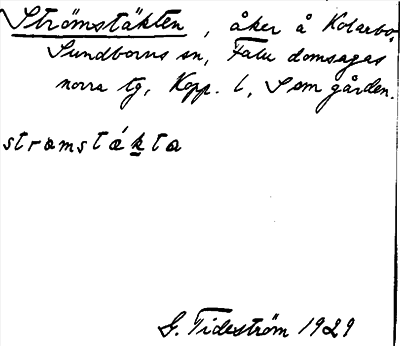 Strömstäkten, åker å Kolarbo,
Sundborns sn, Falu domsagas
norra tg, Kopp. l, S om gården.
stramstákta
G. Tideström 1929